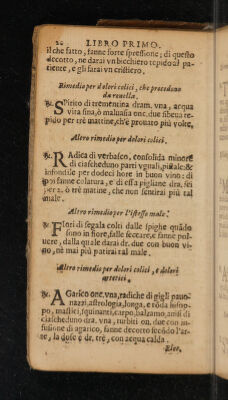 26 LIBRO PRIMO.
il che fatto, fanne forte spressione; di questo
decotto, ne darai vn bicchiero tepido al pa-
tiente, e gli farai vn cristiero.
Rimedio per dolori colici, che procedono
da
SPirito di trementina dram. vna, acqua
vita fina, ò maluasia onc. due si beua te-
pido per trè mattine, ch'è prouato più volte,
Altro rimedio per dolori colici.
RAdica di verbasco, consolida minore
di ciascheduno parti vguali, pistale, &
infondile per dodeci hore in buon vino: di
poi fanne colatura, e di essa pigliane dra. sei
per 2. ò trè matine, che non sentirai più tal
male.
Altro rimedio per l'istesso male.
FIori di segala colti dalle spighe quādo
sono in fiore, falle seccare, e fanne pol-
uere, dalla quale darai dr. due con buon vi
no, nè mai più patirai tal male.
Altro rimedio per dolori colici, e dolori
AGarico onc. vna, radiche di gigli pauo-
nazzi, astrologia longa, e roda
po, mastici, squinanti, carpo, balzamo, anisi di
ciascheduno dra. vna, turbiti on. due con in-
fusione di agarico, fanne decotto secōdo l'ar-
te, la dose è dr. trè, con acqua calda.
Elec.